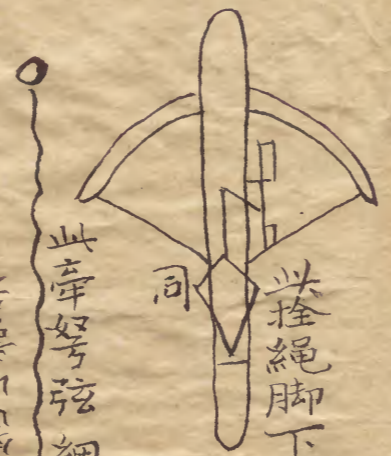 此拴繩脚下
同
此牽弩弦